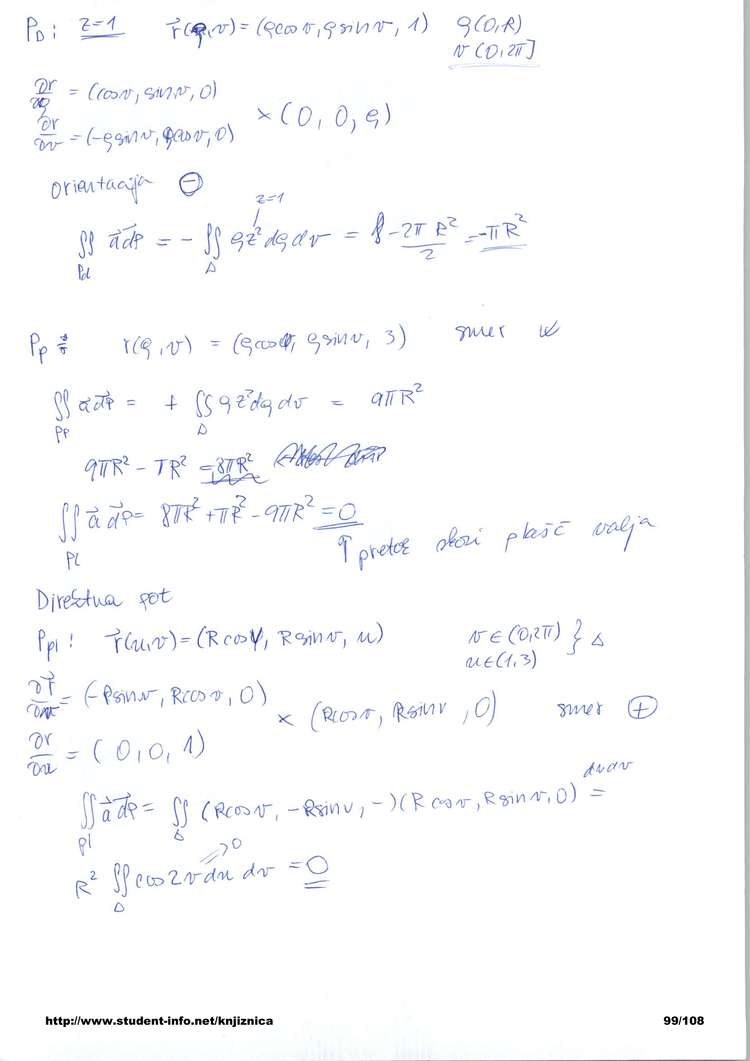 P_D: z=1 r⃗(ϱ,v) = (ϱcosv, ϱsinv, 1) ϱ(0,R)
v(0,2π]
∂r/∂ϱ = (cosv, sinv, 0)
× (0, 0, ϱ)
∂r/∂v = (-ϱsinv, ϱcosv, 0)
orientacija ⊖
z=1
∬_Pd a⃗ dP⃗ = - ∬_Δ ϱz² dϱ dv = -2π R²/2 = -πR²
P_p: r(ϱ,v) = (ϱcosv, ϱsinv, 3) smer
∬_Pp a⃗ dP⃗ = + ∬_Δ ϱz² dϱ dv = 9πR²
9πR² - πR² = 8πR²
∬_Pl a⃗ dP⃗ = 8πR² + πR² - 9πR² = 0
↑ pretok skozi plašč valja
Direktna pot
P_pl: r⃗(u,v) = (Rcosv, Rsinv, u) v∈(0,2π) } Δ
u∈(1,3)
∂r⃗/∂v = (-Rsinv, Rcosv, 0)
× (Rcosv, Rsinv, 0) smer ⊕
∂r/∂u = (0, 0, 1)
∬_pl a⃗ dP⃗ = ∬_Δ (Rcosv, -Rsinv, -)(Rcosv, Rsinv, 0) dudv =
R² ∬_Δ cos2v du dv = 0
⇒0
http://www.student-info.net/knjiznica 99/108